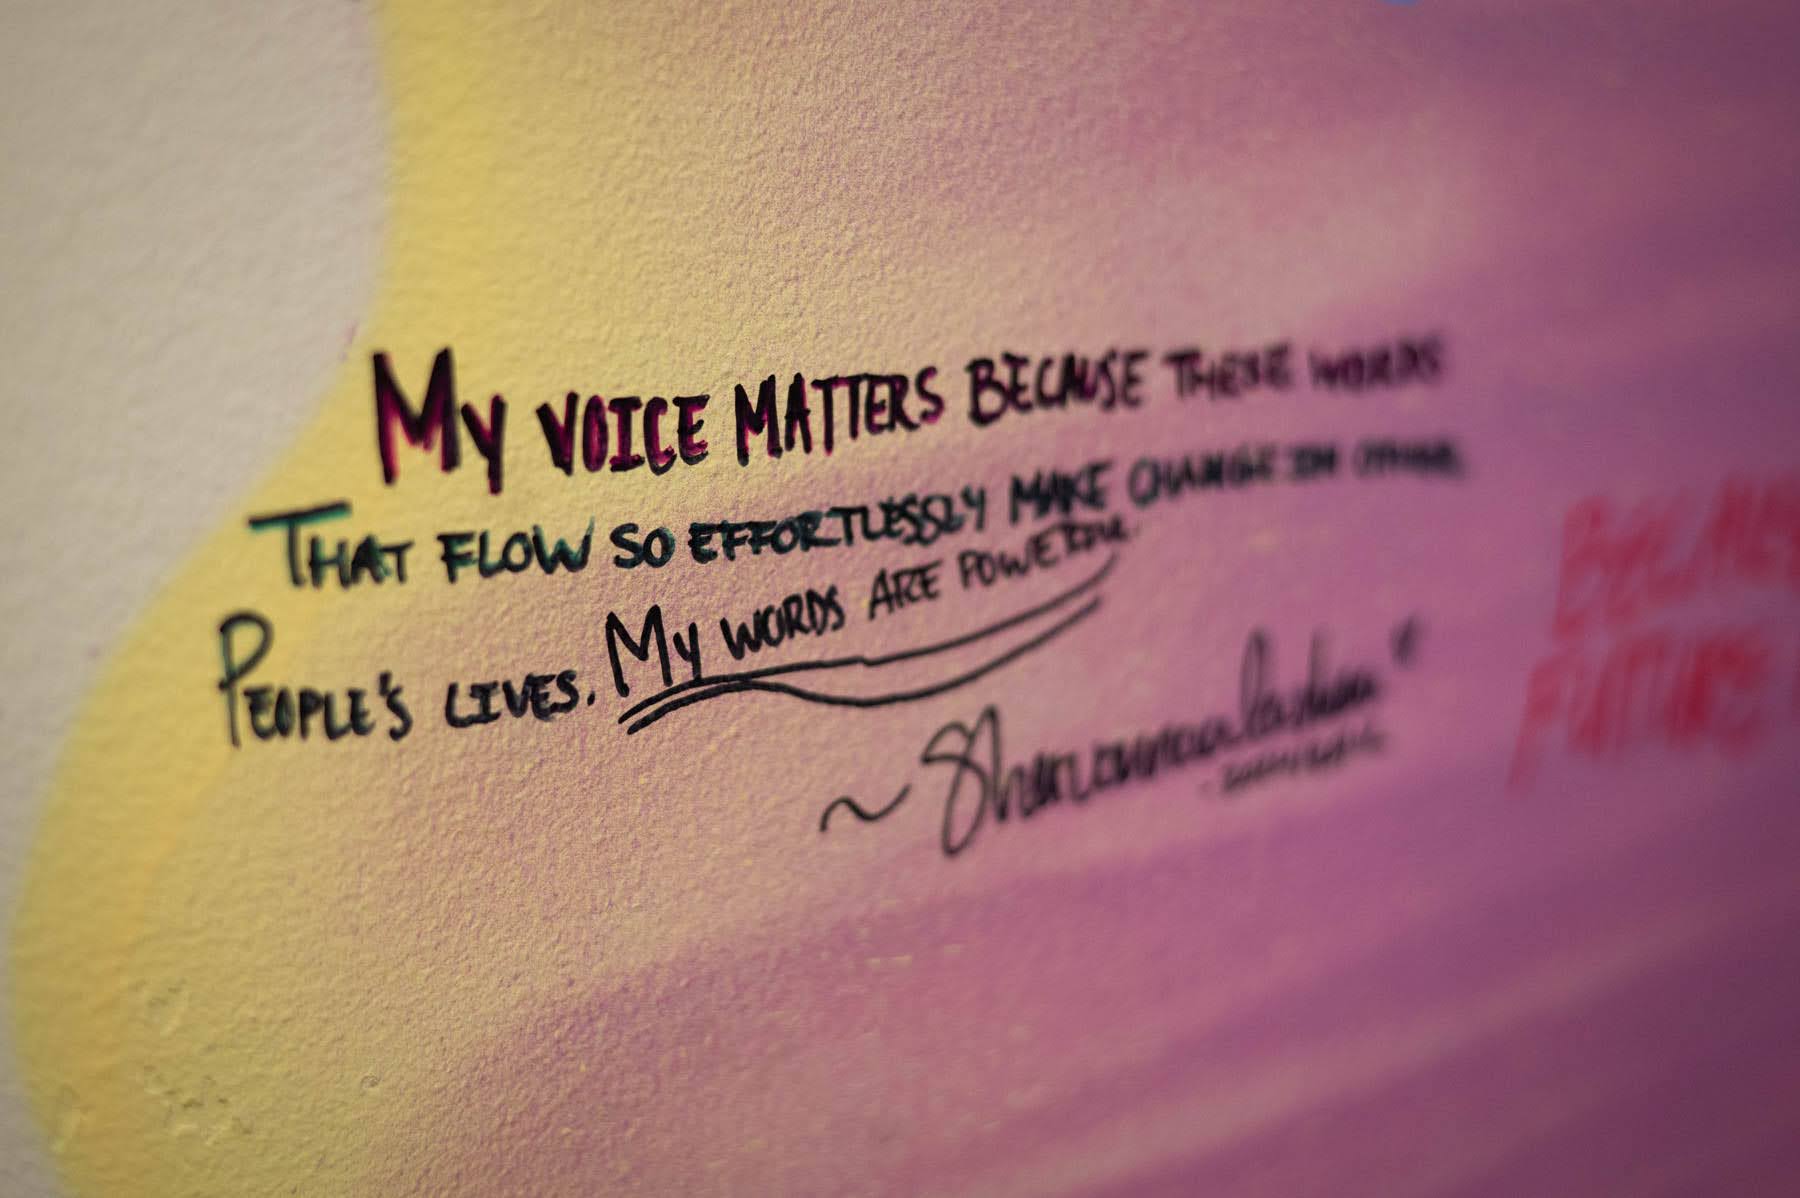 My VOICE MATTERS BECAUSE THESE WORDS
THAT FLOW SO EFFORTLESSLY MAKE CHANGE IN OTHER
PEOPLE'S LIVES. My WORDS ARE POWERFUL.
BECAUSE
FUTURE